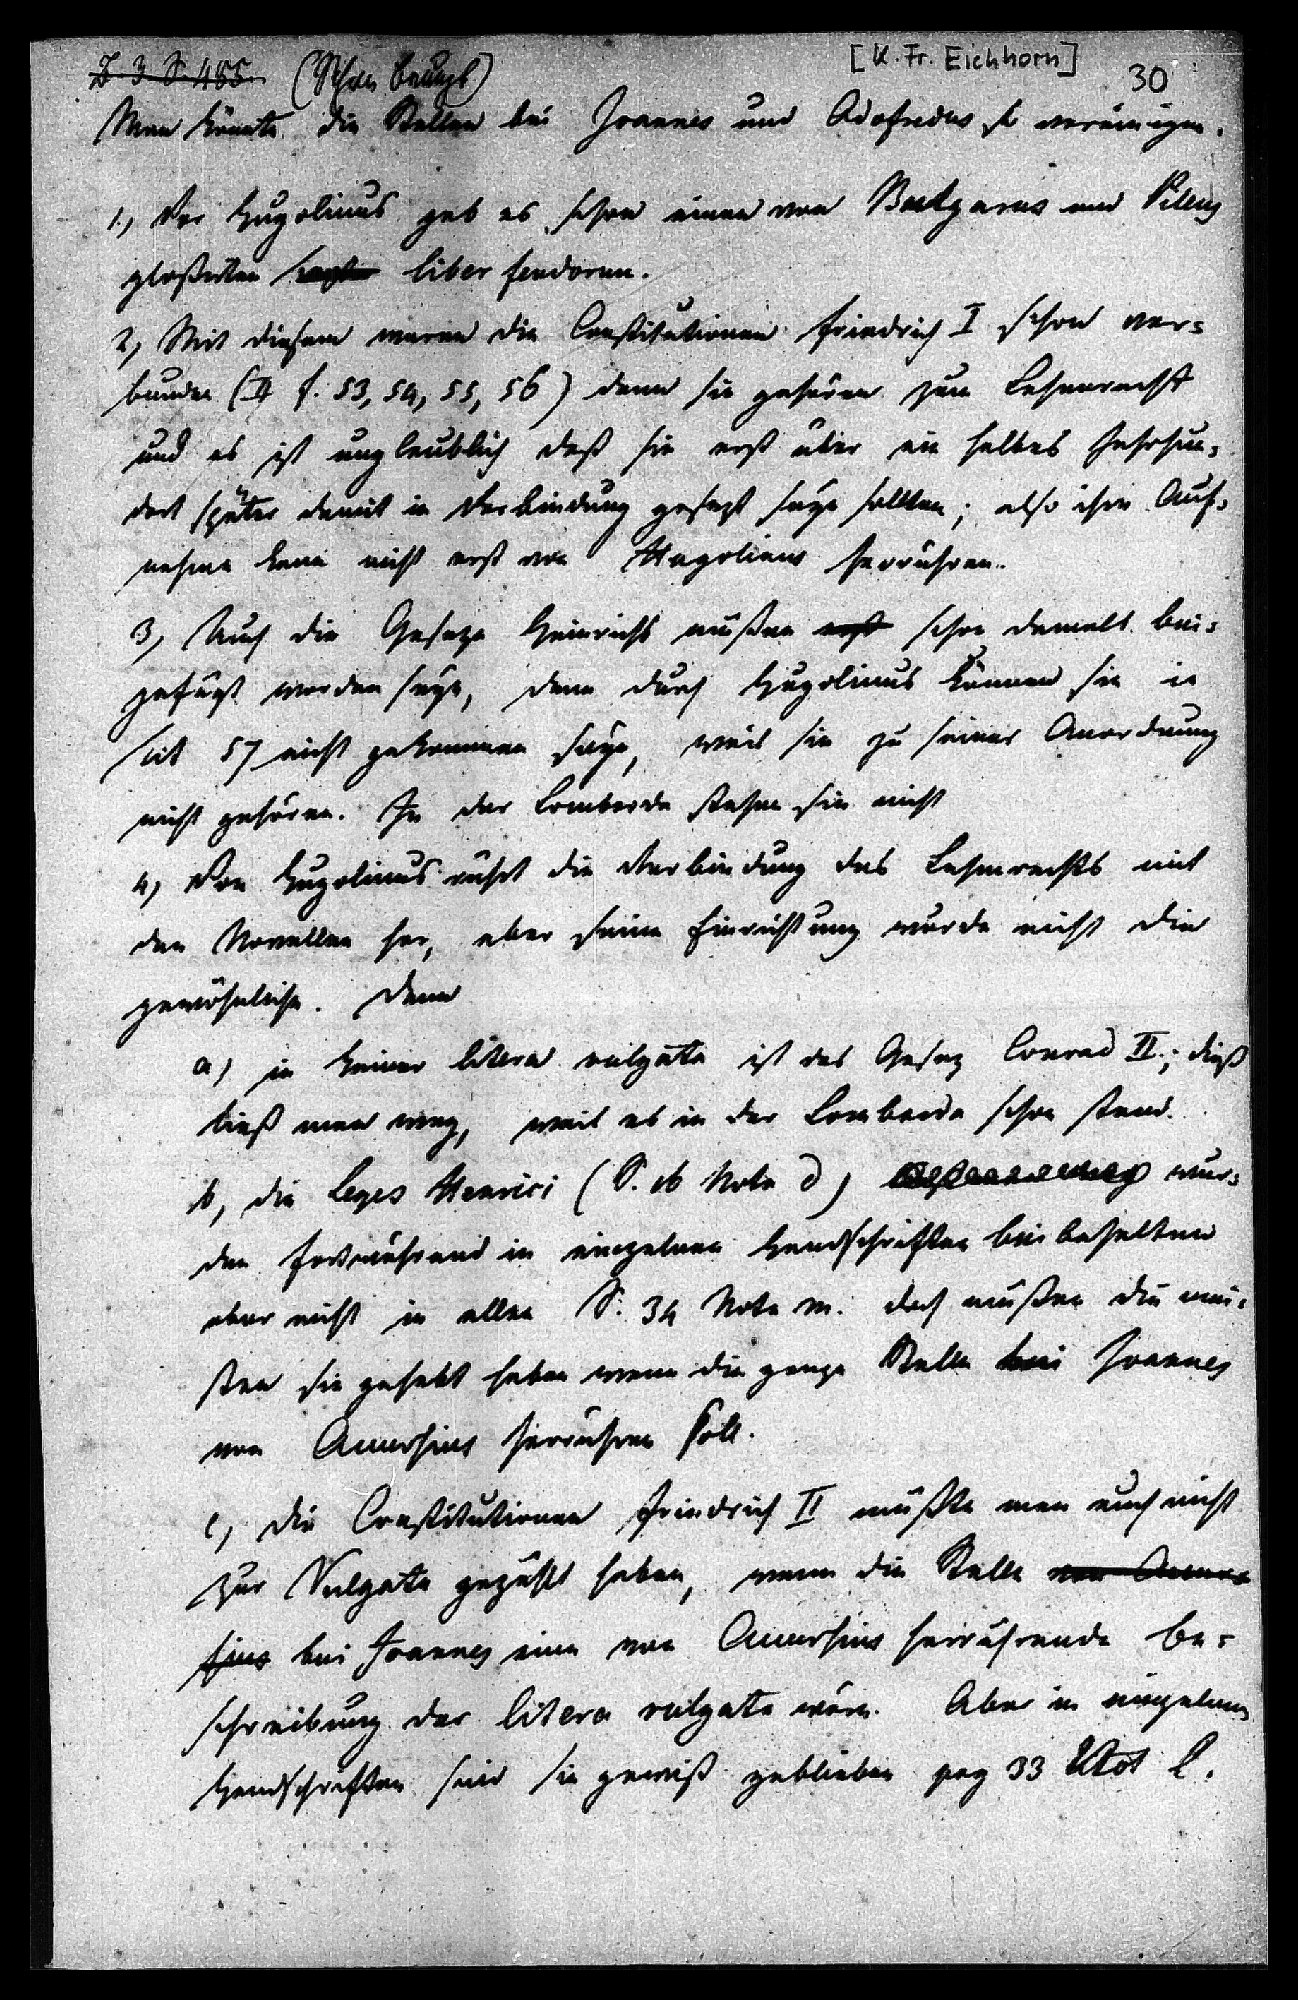 [K. Fr. Eichhorn]
30
B 3 S. 455. (Schon benuzt)
Man könnte die Stellen bei Joannes und Odofredus so vereinigen.
1, Vor Hugolinus gab es schon einen von Bulgarus und Pileus
gloßirten liber feudorum.
2, Mit diesem waren die Constitutionen Friedrich I schon ver=
bunden (II f. 53, 54, 55, 56) denn sie gehören zum Lehenrecht
und es ist unglaublich daß sie erst über ein halbes Jahrhun=
dert später damit in Verbindung gesezt seyn sollten; also ihre Auf=
nahme kann nicht erst von Hugolinus herrühren.
3, Auch die Geseze Heinrichs müßen erst schon damals bei=
gefügt worden seyn, denn durch Hugolinus können sie in
tit 57 nicht gekommen seyn, weil sie zu seiner Anordnung
nicht gehören. In der Lombarda stehen sie nicht
4, Von Hugolinus rührt die Verbindung des Lehenrechts mit
den Novellen her, aber seine Einrichtung wurde nicht die
gewöhnliche. Denn
a) in keiner litera vulgata ist das Gesez Conrad II.; dieß
ließ man weg, weil es in der Lombarda schon stand.
b, die Leges Henrici (S. 16 Note d) wur=
den fortwährend in einzelnen Handschriften beibehalten
aber nicht in allen S. 34 Note m. doch müßen die mei=
sten sie gehabt haben wenn die ganze Stelle bei Joannes
von Accursius herrühren soll.
c, die Constitutionen Friedrich II müßte man auch nicht
zur Vulgata gezählt haben, wenn die Stelle von Accur=
sius bei Joannes eine von Accursius herrührende Be=
schreibung der litera vulgata wäre. Aber in einzelnen
Handschriften sind sie gewiß geblieben pag 33 Not l.